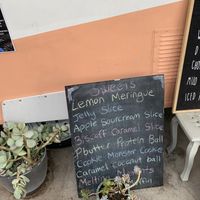 Sweets
Lemon Meringue
Jelly Slice
Apple Sourcream Slice
Biscoff Caramel Slice
Pbutter Protein Ball
Cookie Monster Cookie
Caramel coconut ball
Melt